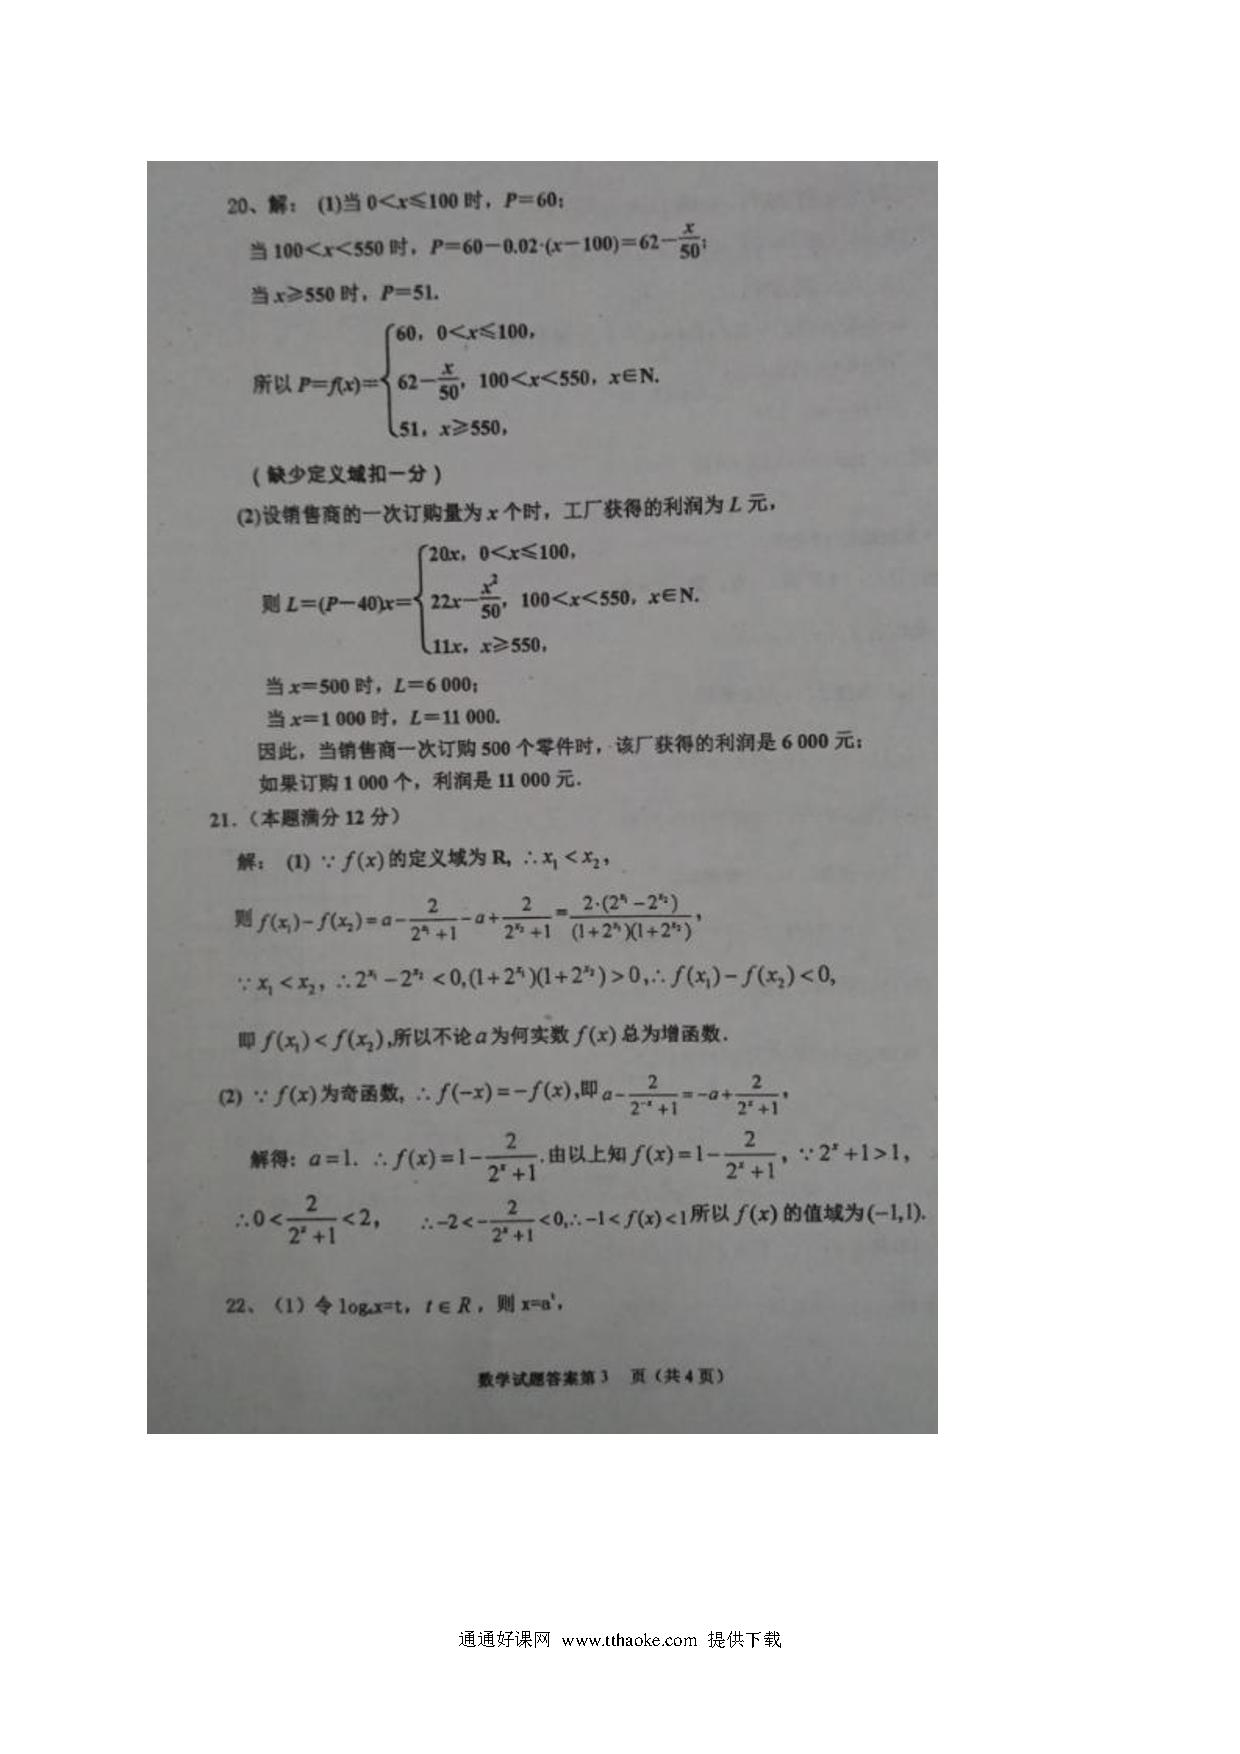 20、解： (1)当 0＜x≤100 时，P＝60；
当 100＜x＜550 时，P＝60－0.02·(x－100)＝62－x/50；
当 x≥550 时，P＝51.
所以 P＝f(x)＝{60，0＜x≤100，
62－x/50，100＜x＜550，x∈N.
51，x≥550，
（缺少定义域扣一分）
(2)设销售商的一次订购量为 x 个时，工厂获得的利润为 L 元，
则 L＝(P－40)x＝{20x，0＜x≤100，
22x－x²/50，100＜x＜550，x∈N.
11x，x≥550，
当 x＝500 时，L＝6 000；
当 x＝1 000 时，L＝11 000.
因此，当销售商一次订购 500 个零件时，该厂获得的利润是 6 000 元；
如果订购 1 000 个，利润是 11 000 元．
21.（本题满分 12 分）
解： (1) ∵ f(x)的定义域为 R, ∴x₁ < x₂，
则 f(x₁)－f(x₂)＝a－2/(2^x₁+1)－a＋2/(2^x₂+1)＝2·(2^x₁－2^x₂)/((1+2^x₁)(1+2^x₂))，
∵ x₁ < x₂，∴2^x₁－2^x₂ < 0,(1+2^x₁)(1+2^x₂) > 0,∴ f(x₁)－f(x₂) < 0,
即 f(x₁) < f(x₂),所以不论 a 为何实数 f(x) 总为增函数．
(2) ∵ f(x)为奇函数, ∴ f(−x)＝−f(x),即 a－2/(2^−x+1)＝−a＋2/(2^x+1)，
解得：a＝1. ∴ f(x)＝1－2/(2^x+1).由以上知 f(x)＝1－2/(2^x+1)，∵2^x+1>1，
∴0 < 2/(2^x+1) < 2， ∴−2 < −2/(2^x+1) < 0,∴−1 < f(x) < 1所以 f(x) 的值域为(−1,1).
22、（1）令 logₐx=t，t∈R，则 x=a^t，
数学试题答案第 3 页（共 4 页）
通通好课网 www.tthaoke.com 提供下载